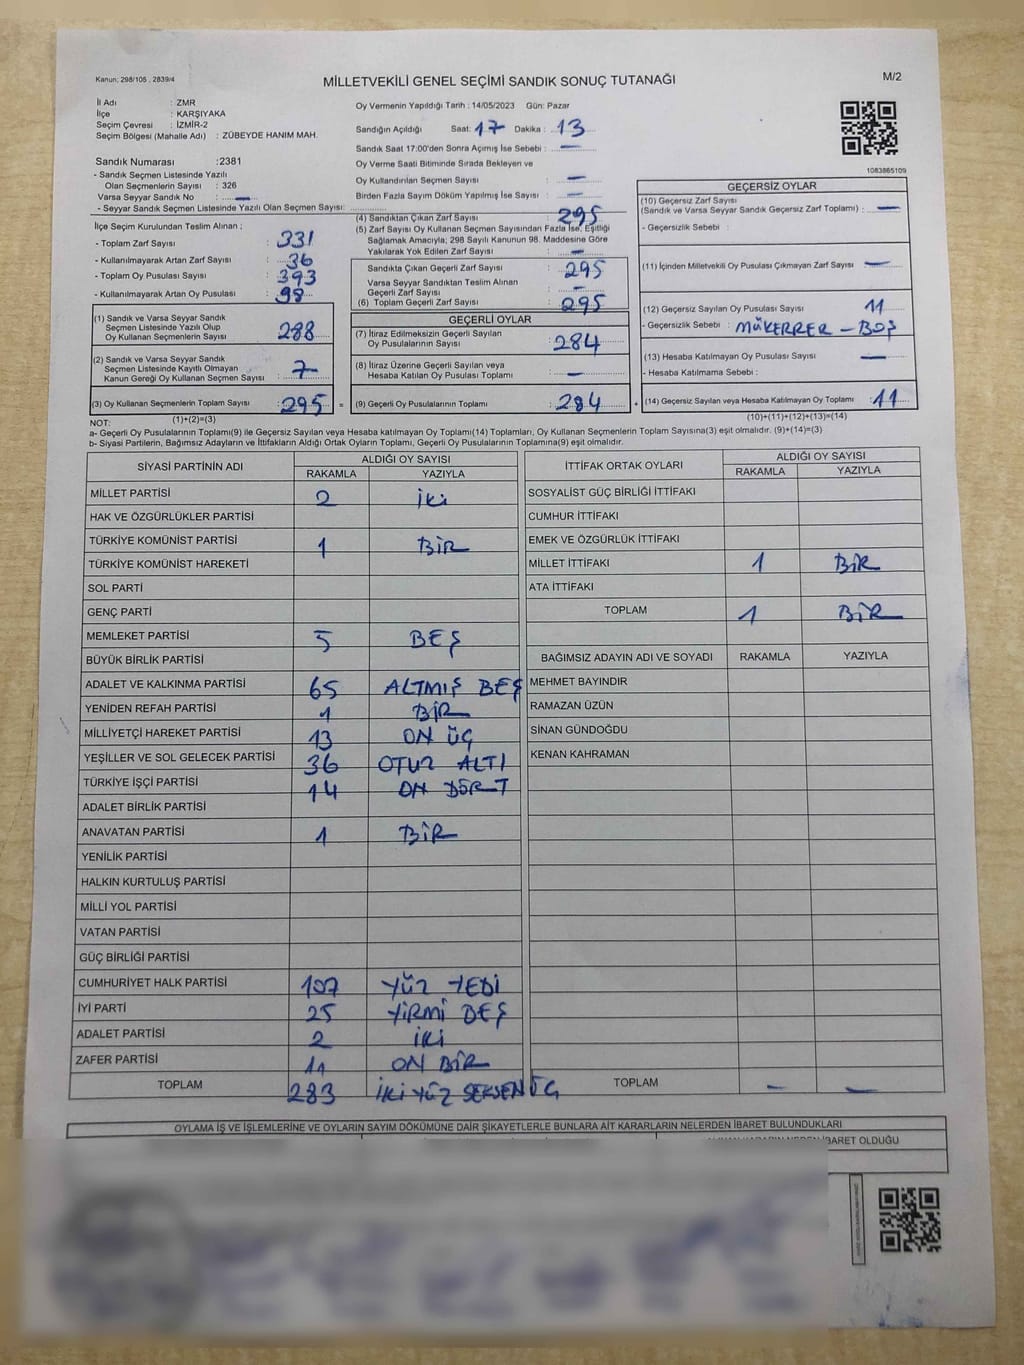 Kanun: 298/105 , 2839/4
MİLLETVEKİLİ GENEL SEÇİMİ SANDIK SONUÇ TUTANAĞI
M/2
İl Adı : ZMR
İlçe : KARŞIYAKA
Seçim Çevresi : İZMİR-2
Seçim Bölgesi (Mahalle Adı) : ZÜBEYDE HANIM MAH.
Sandık Numarası :2381
- Sandık Seçmen Listesinde Yazılı
Olan Seçmenlerin Sayısı : 326
Varsa Seyyar Sandık No : —
- Seyyar Sandık Seçmen Listesinde Yazılı Olan Seçmen Sayısı:
Oy Vermenin Yapıldığı Tarih : 14/05/2023 Gün: Pazar
Sandığın Açıldığı Saat: 17 Dakika : 13
Sandık Saat 17:00'den Sonra Açımış İse Sebebi : —
Oy Verme Saati Bitiminde Sırada Bekleyen ve
Oy Kullandırılan Seçmen Sayısı : —
Birden Fazla Sayım Döküm Yapılmış İse Sayısı : —
1083865109
İlçe Seçim Kurulundan Teslim Alınan ;
- Toplam Zarf Sayısı : 331
- Kullanılmayarak Artan Zarf Sayısı : 36
- Toplam Oy Pusulası Sayısı : 393
- Kullanılmayarak Artan Oy Pusulası : 98
(1) Sandık ve Varsa Seyyar Sandık
Seçmen Listesinde Yazılı Olup
Oy Kullanan Seçmenlerin Sayısı : 288
(2) Sandık ve Varsa Seyyar Sandık
Seçmen Listesinde Kayıtlı Olmayan
Kanun Gereği Oy Kullanan Seçmen Sayısı : 7
(3) Oy Kullanan Seçmenlerin Toplam Sayısı : 295 =
(4) Sandıktan Çıkan Zarf Sayısı : 295
(5) Zarf Sayısı Oy Kullanan Seçmen Sayısından Fazla İse, Eşitliği
Sağlamak Amacıyla; 298 Sayılı Kanunun 98. Maddesine Göre
Yakılarak Yok Edilen Zarf Sayısı : —
Sandıkta Çıkan Geçerli Zarf Sayısı : 295
Varsa Seyyar Sandıktan Teslim Alınan
Geçerli Zarf Sayısı : —
(6) Toplam Geçerli Zarf Sayısı : 295
GEÇERLİ OYLAR
(7) İtiraz Edilmeksizin Geçerli Sayılan
Oy Pusulalarının Sayısı : 284
(8) İtiraz Üzerine Geçerli Sayılan veya
Hesaba Katılan Oy Pusulası Toplamı : —
(9) Geçerli Oy Pusulalarının Toplamı : 284 +
GEÇERSİZ OYLAR
(10) Geçersiz Zarf Sayısı
(Sandık ve Varsa Seyyar Sandık Geçersiz Zarf Toplamı) : —
- Geçersizlik Sebebi :
(11) İçinden Milletvekili Oy Pusulası Çıkmayan Zarf Sayısı : —
(12) Geçersiz Sayılan Oy Pusulası Sayısı : 11
- Geçersizlik Sebebi : MÜKERRER – BOŞ
(13) Hesaba Katılmayan Oy Pusulası Sayısı : —
- Hesaba Katılmama Sebebi :
(14) Geçersiz Sayılan veya Hesaba Katılmayan Oy Toplamı : 11
NOT: (1)+(2)=(3)
(10)+(11)+(12)+(13)=(14)
a- Geçerli Oy Pusulaları Toplamı(9) ile Geçersiz Sayılan veya Hesaba katılmayan Oy Toplamı(14) Toplamları, Oy Kullanan Seçmenlerin Toplam Sayısına(3) eşit olmalıdır. (9)+(14)=(3)
b- Siyasi Partilerin, Bağımsız Adayların ve İttifakların Aldığı Ortak Oyların Toplamı, Geçerli Oy Pusulalarının Toplamına(9) eşit olmalıdır.
SİYASİ PARTİNİN ADI ALDIĞI OY SAYISI
RAKAMLA YAZIYLA
MİLLET PARTİSİ 2 İKİ
HAK VE ÖZGÜRLÜKLER PARTİSİ
TÜRKİYE KOMÜNİST PARTİSİ 1 BİR
TÜRKİYE KOMÜNİST HAREKETİ
SOL PARTİ
GENÇ PARTİ
MEMLEKET PARTİSİ 5 BEŞ
BÜYÜK BİRLİK PARTİSİ
ADALET VE KALKINMA PARTİSİ 65 ALTMIŞ BEŞ
YENİDEN REFAH PARTİSİ 1 BİR
MİLLİYETÇİ HAREKET PARTİSİ 13 ON ÜÇ
YEŞİLLER VE SOL GELECEK PARTİSİ 36 OTUZ ALTI
TÜRKİYE İŞÇİ PARTİSİ 14 ON DÖRT
ADALET BİRLİK PARTİSİ
ANAVATAN PARTİSİ 1 BİR
YENİLİK PARTİSİ
HALKIN KURTULUŞ PARTİSİ
MİLLİ YOL PARTİSİ
VATAN PARTİSİ
GÜÇ BİRLİĞİ PARTİSİ
CUMHURİYET HALK PARTİSİ 107 YÜZ YEDİ
İYİ PARTİ 25 YİRMİ BEŞ
ADALET PARTİSİ 2 İKİ
ZAFER PARTİSİ 11 ON BİR
TOPLAM 283 İKİ YÜZ SEKSEN ÜÇ
İTTİFAK ORTAK OYLARI ALDIĞI OY SAYISI
RAKAMLA YAZIYLA
SOSYALİST GÜÇ BİRLİĞİ İTTİFAKI
CUMHUR İTTİFAKI
EMEK VE ÖZGÜRLÜK İTTİFAKI
MİLLET İTTİFAKI 1 BİR
ATA İTTİFAKI
TOPLAM 1 BİR
BAĞIMSIZ ADAYIN ADI VE SOYADI RAKAMLA YAZIYLA
MEHMET BAYINDIR
RAMAZAN ÜZÜN
SİNAN GÜNDOĞDU
KENAN KAHRAMAN
TOPLAM — —
OYLAMA İŞ VE İŞLEMLERİNE VE OYLARIN SAYIM DÖKÜMÜNE DAİR ŞİKAYETLERLE BUNLARA AİT KARARLARIN NELERDEN İBARET BULUNDUKLARI
İBARET OLDUĞU